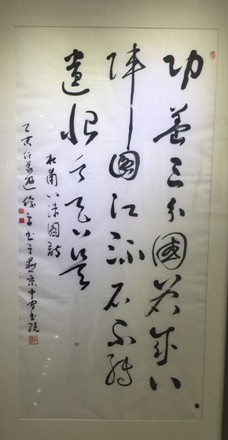 功蓋三分國名成八
陣圖江流石不轉
遺恨失吞吳
杜甫八陣圖詩
乙亥